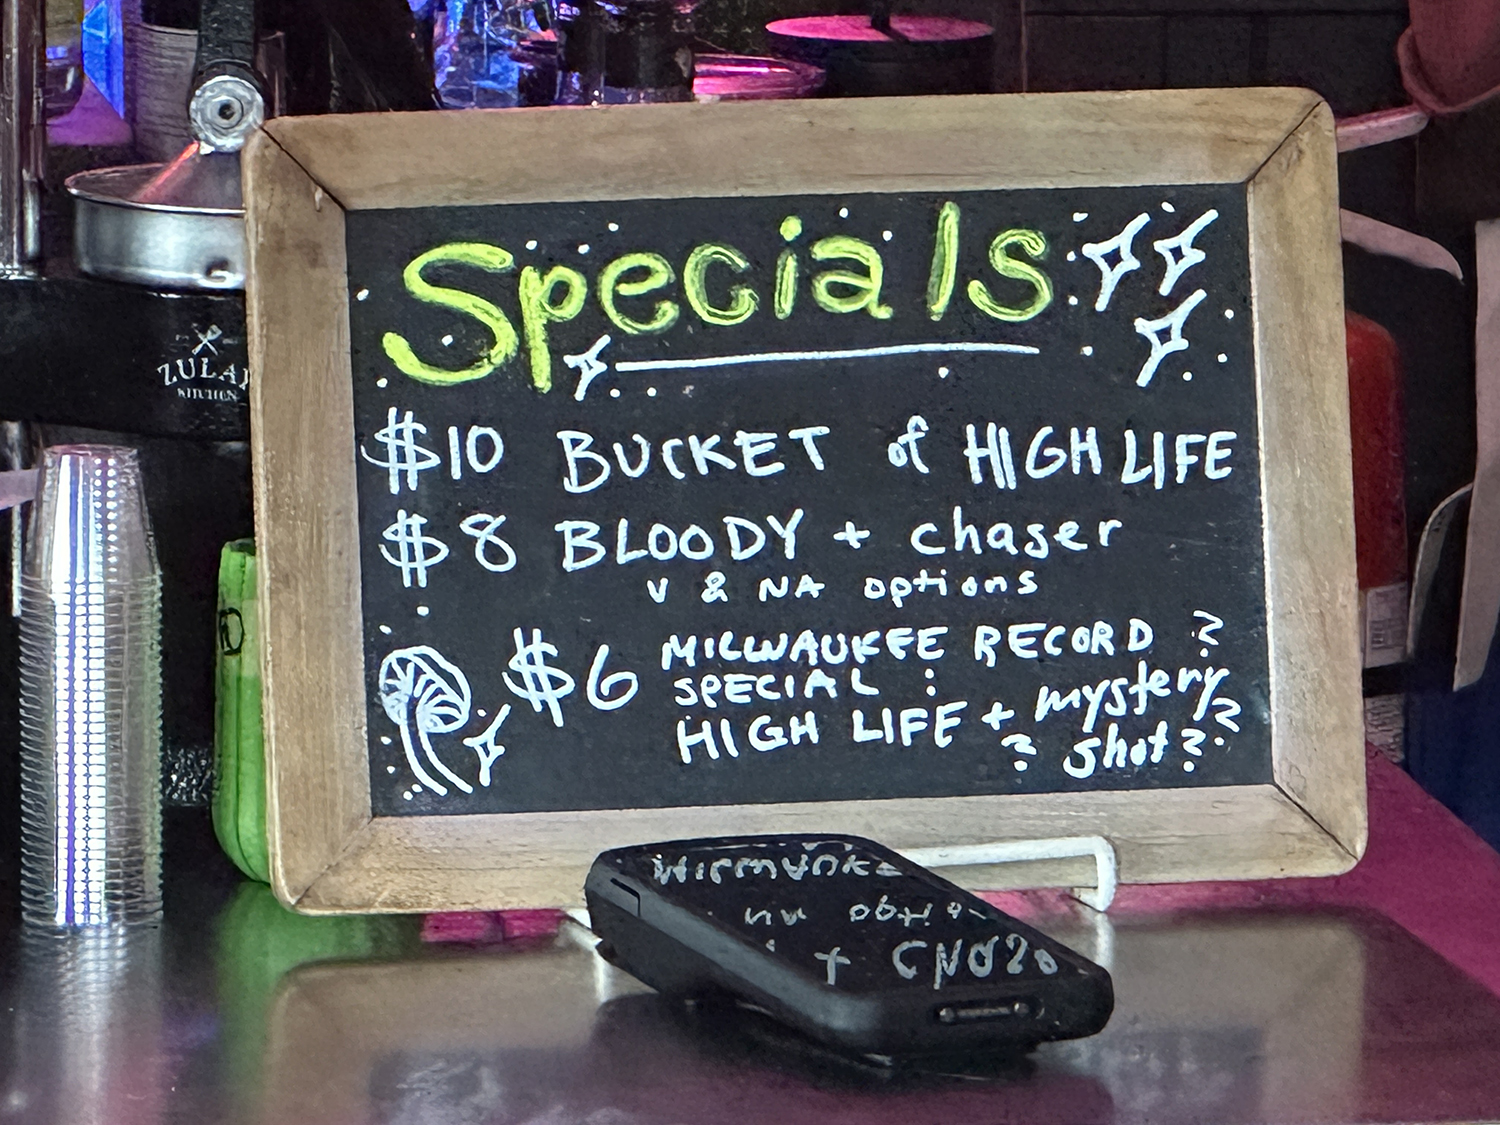 Specials
$10 BUCKET of HIGH LIFE
$8 BLOODY + chaser
V & NA options
$6 MILWAUKEE RECORD ?
SPECIAL :
HIGH LIFE + mystery ?
? shot ?
ZULAY
KITCHEN